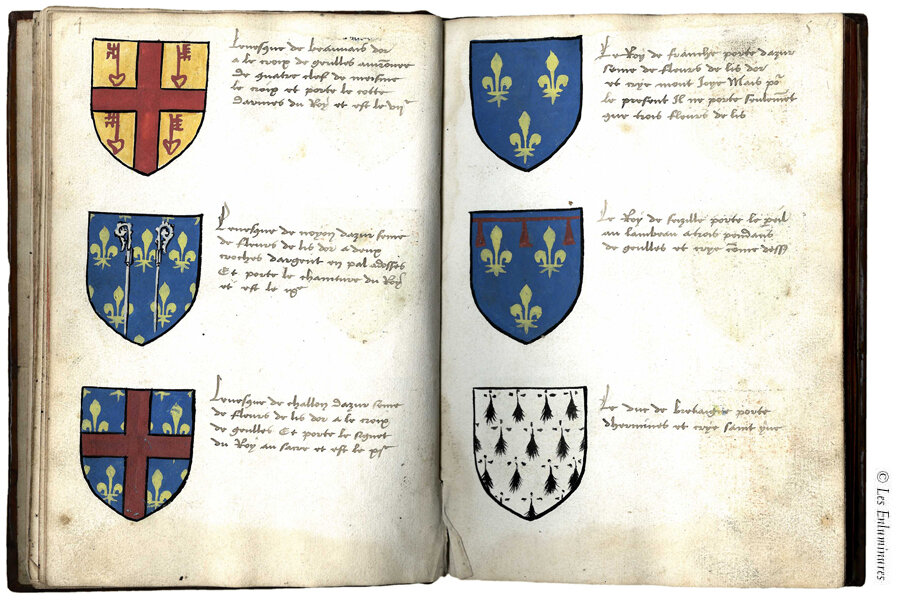 4
Leuesque de beauuais dor
a le croix de geulles auironnee
de quatre clef de meisme
le croix et porte le cotte
darmes du Roy et est le
Leuesque de noyon dazur seme
de fleurs de lis dor a deux
croches dargent en pal adosses
Et porte le chainture du Roy
et est le
Leuesque de challon dazur seme
de fleurs de lis dor a le croix
de geulles Et porte le signet
du Roy au sacre et est le
5
Le Roy de franche porte dazur
seme de fleurs de lis dor
et crye mont Joye Mais po^r
le present Il ne porte seulement
que trois fleurs de lis
Le Roy de sezille porte le
au lambeau a trois pendans
de geulles et crye come dess
Le duc de bretaigne porte
dhermines et crye saint yue
© Les Enluminures